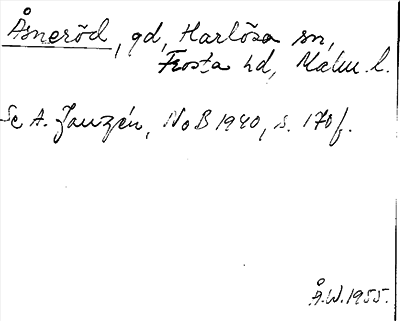 Åsneröd, gd, Harlösa sn,
Frosta hd, Malm. l.
Se A. Janzén, NoB 1940, s. 170 f.
Å.W. 1955.